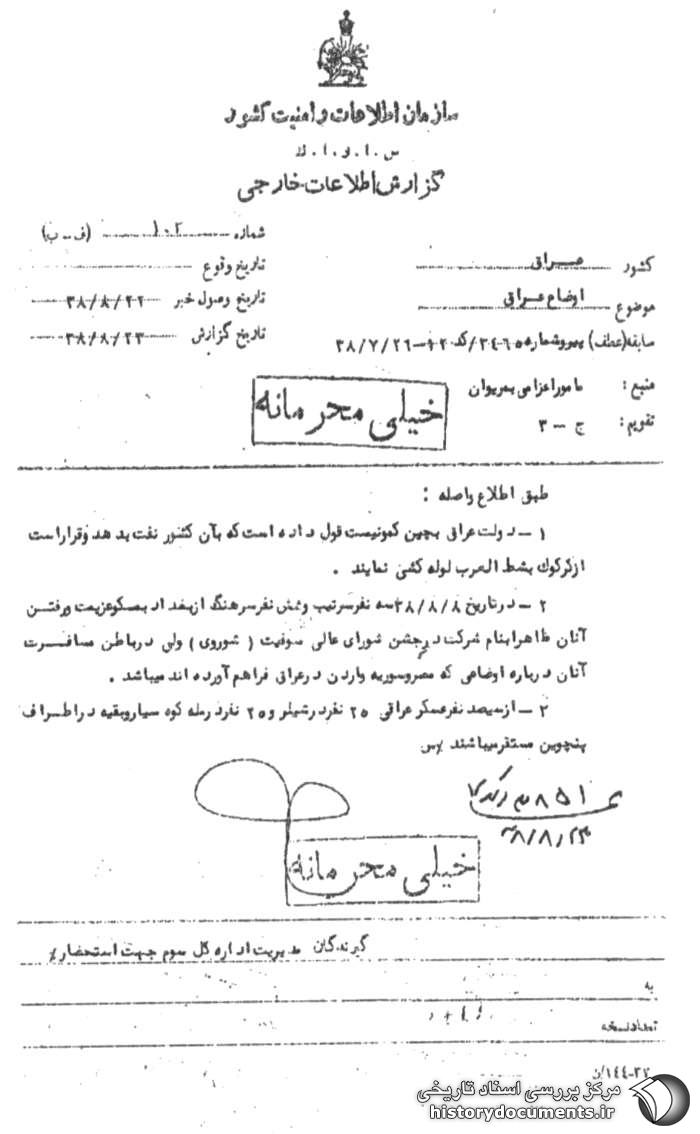 سازمان اطلاعات و امنیت کشور
س . ا . و . ا . ک
گزارش اطلاعات خارجی
شماره ۱۰۲ (ف - ب)
تاریخ وقوع
تاریخ وصول خبر ۳۸/۸/۲۲
تاریخ گزارش ۳۸/۸/۲۳
کشور عراق
موضوع اوضاع عراق
سابقه (عطف) پیرو شماره ۳۴۶۵/کد ۱۲-۳۸/۷/۲۶
منبع : مامور اعزامی بمریوان
تقویم : ج - ۳
خیلی محرمانه
طبق اطلاع واصله :
۱ - دولت عراق بچین کمونیست قول داده است که بآن کشور نفت بدهد و قرار است
از کرکوک بشط العرب لوله کشی نمایند .
۲ - در تاریخ ۳۸/۸/۸ سه نفر سرتیپ و شش نفر سرهنگ از بغداد بمسکو عزیمت و رفتن
آنان ظاهرا بنام شرکت در جشن شورای عالی سوفیت ( شوروی ) ولی در باطن مسافرت
آنان درباره اوضاعی که مصر و سوریه و اردن در عراق فراهم آورده اند میباشد .
۳ - از سیصد نفر عسکر عراقی ۲۵ نفر در شیلر و ۲۵ نفر در مله کوه سیار و بقیه در اطراف
پنجوین مستقر میباشند ٪س
۸۵۱
۳۸/۸/۲۳
خیلی محرمانه
گیرندگان مدیریت اداره کل سوم جهت استحضار٪
به
تعداد نسخه
۱۴۴-۳۲/ن
مرکز بررسی اسناد تاریخی
historydocuments.ir